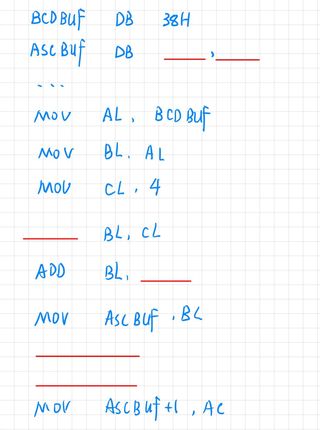 BCDBUF DB 38H
ASCBUF DB ____ , ____
...
MOV AL, BCDBUF
MOV BL, AL
MOV CL, 4
____ BL, CL
ADD BL, ____
MOV ASCBUF, BL
____
____
MOV ASCBUF+1, AL